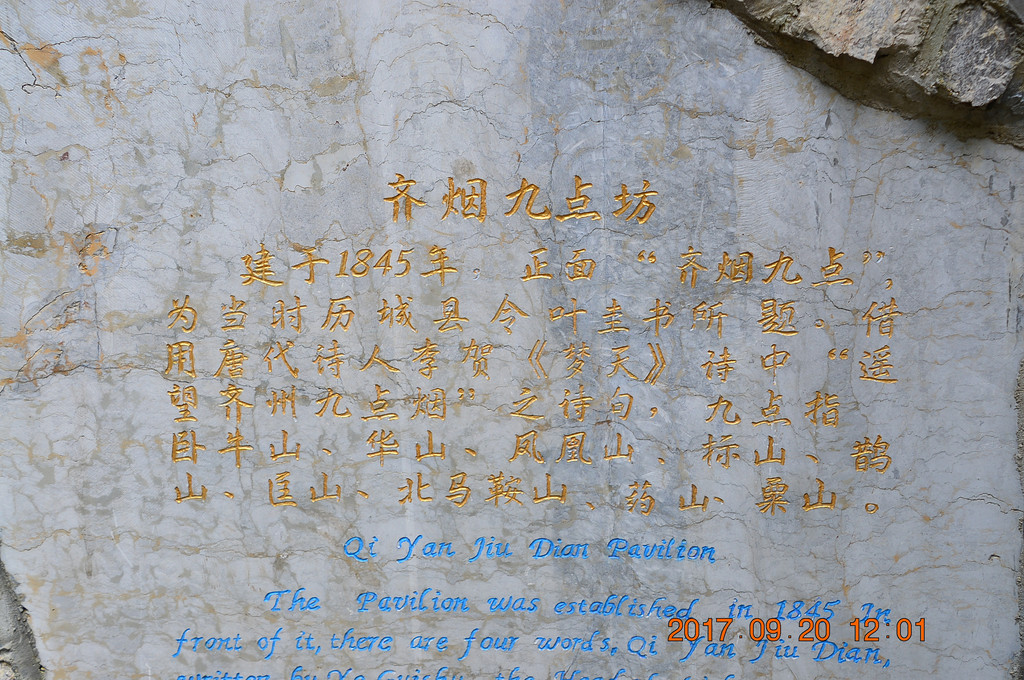 齐烟九点坊
建于1845年。正面“齐烟九点”,
为当时历城县令叶圭书所题。借
用唐代诗人李贺《梦天》诗中“遥
望齐州九点烟”之诗句,九点指
卧牛山、华山、凤凰山、标山、鹊
山、匡山、北马鞍山、药山、粟山。
Qi Yan Jiu Dian Pavilion
The Pavilion was established in 1845 In
front of it, there are four words, Qi Yan Jiu Dian,
written by Ye Guishu, the Head
2017.09.20 12:01